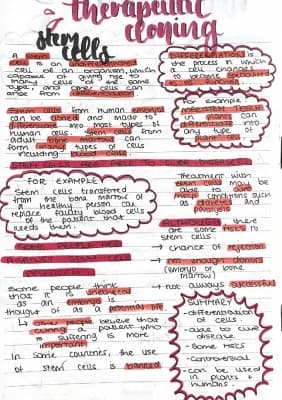 therapeutic
cloning
& stem
cells
A stem
cell is an undifferentiated
cell of an organism, which
capable of giving rise to
many cells of the same
type, and other cells can
arise from differentiation
DIFFERENTIATION is
the process in which
a cell changes
to become specialised
Stem cells from human embryos
can be cloned and made to
differentiate into most types of
human cells. Stem cells from
adult bone marrow can
form many types of cells
including blood cells
For example
meristem tissue
in plants can
differentiate into
any type of
plant cell
FOR EXAMPLE
Stem cells transferred
from the bone marrow of
a healthy person can
replace faulty blood cells
of the patient that
needs them.
Treatment with
stem cells may be
able to cure
conditions such
as diabetes and
paralysis
ALTHOUGH there
are some risks to
stem cells:
→ chance of rejection
→ not enough donors
(embryo or bone
marrow)
→ not always successful
Some people think
that it is unethical
as an embryo is
thought of as a potential life
↳ other people believe that
curing a patient who
is suffering is more
important
In some countries, the use
of stem cells is banned
SUMMARY
- differentiation
of cells
- able to cure
disease
- some risks
- controversial
- can be used
in plants +
humans